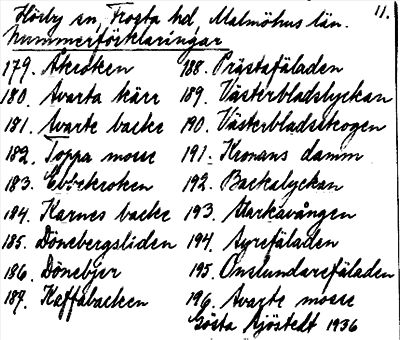 Hörby sn, Frosta hd, Malmöhus län. 11.
Nummerförklaringar
179. Åkroken 188. Prästafäladen
180. Svarta kärr 189. Västerbladslyckan
181. Svarte backe 190. Västerbladsskogen
182. Toppa mosse 191. Kronans damm
183. Ebbekroken 192. Backalyckan
184. Karnes backe 193. Starkavången
185. Dönebergsliden 194. Syrefäladen
186. Dönebjer 195. Onslundarefäladen
187. Kaffabacken 196. Svarte mosse
Gösta Sjöstedt 1936